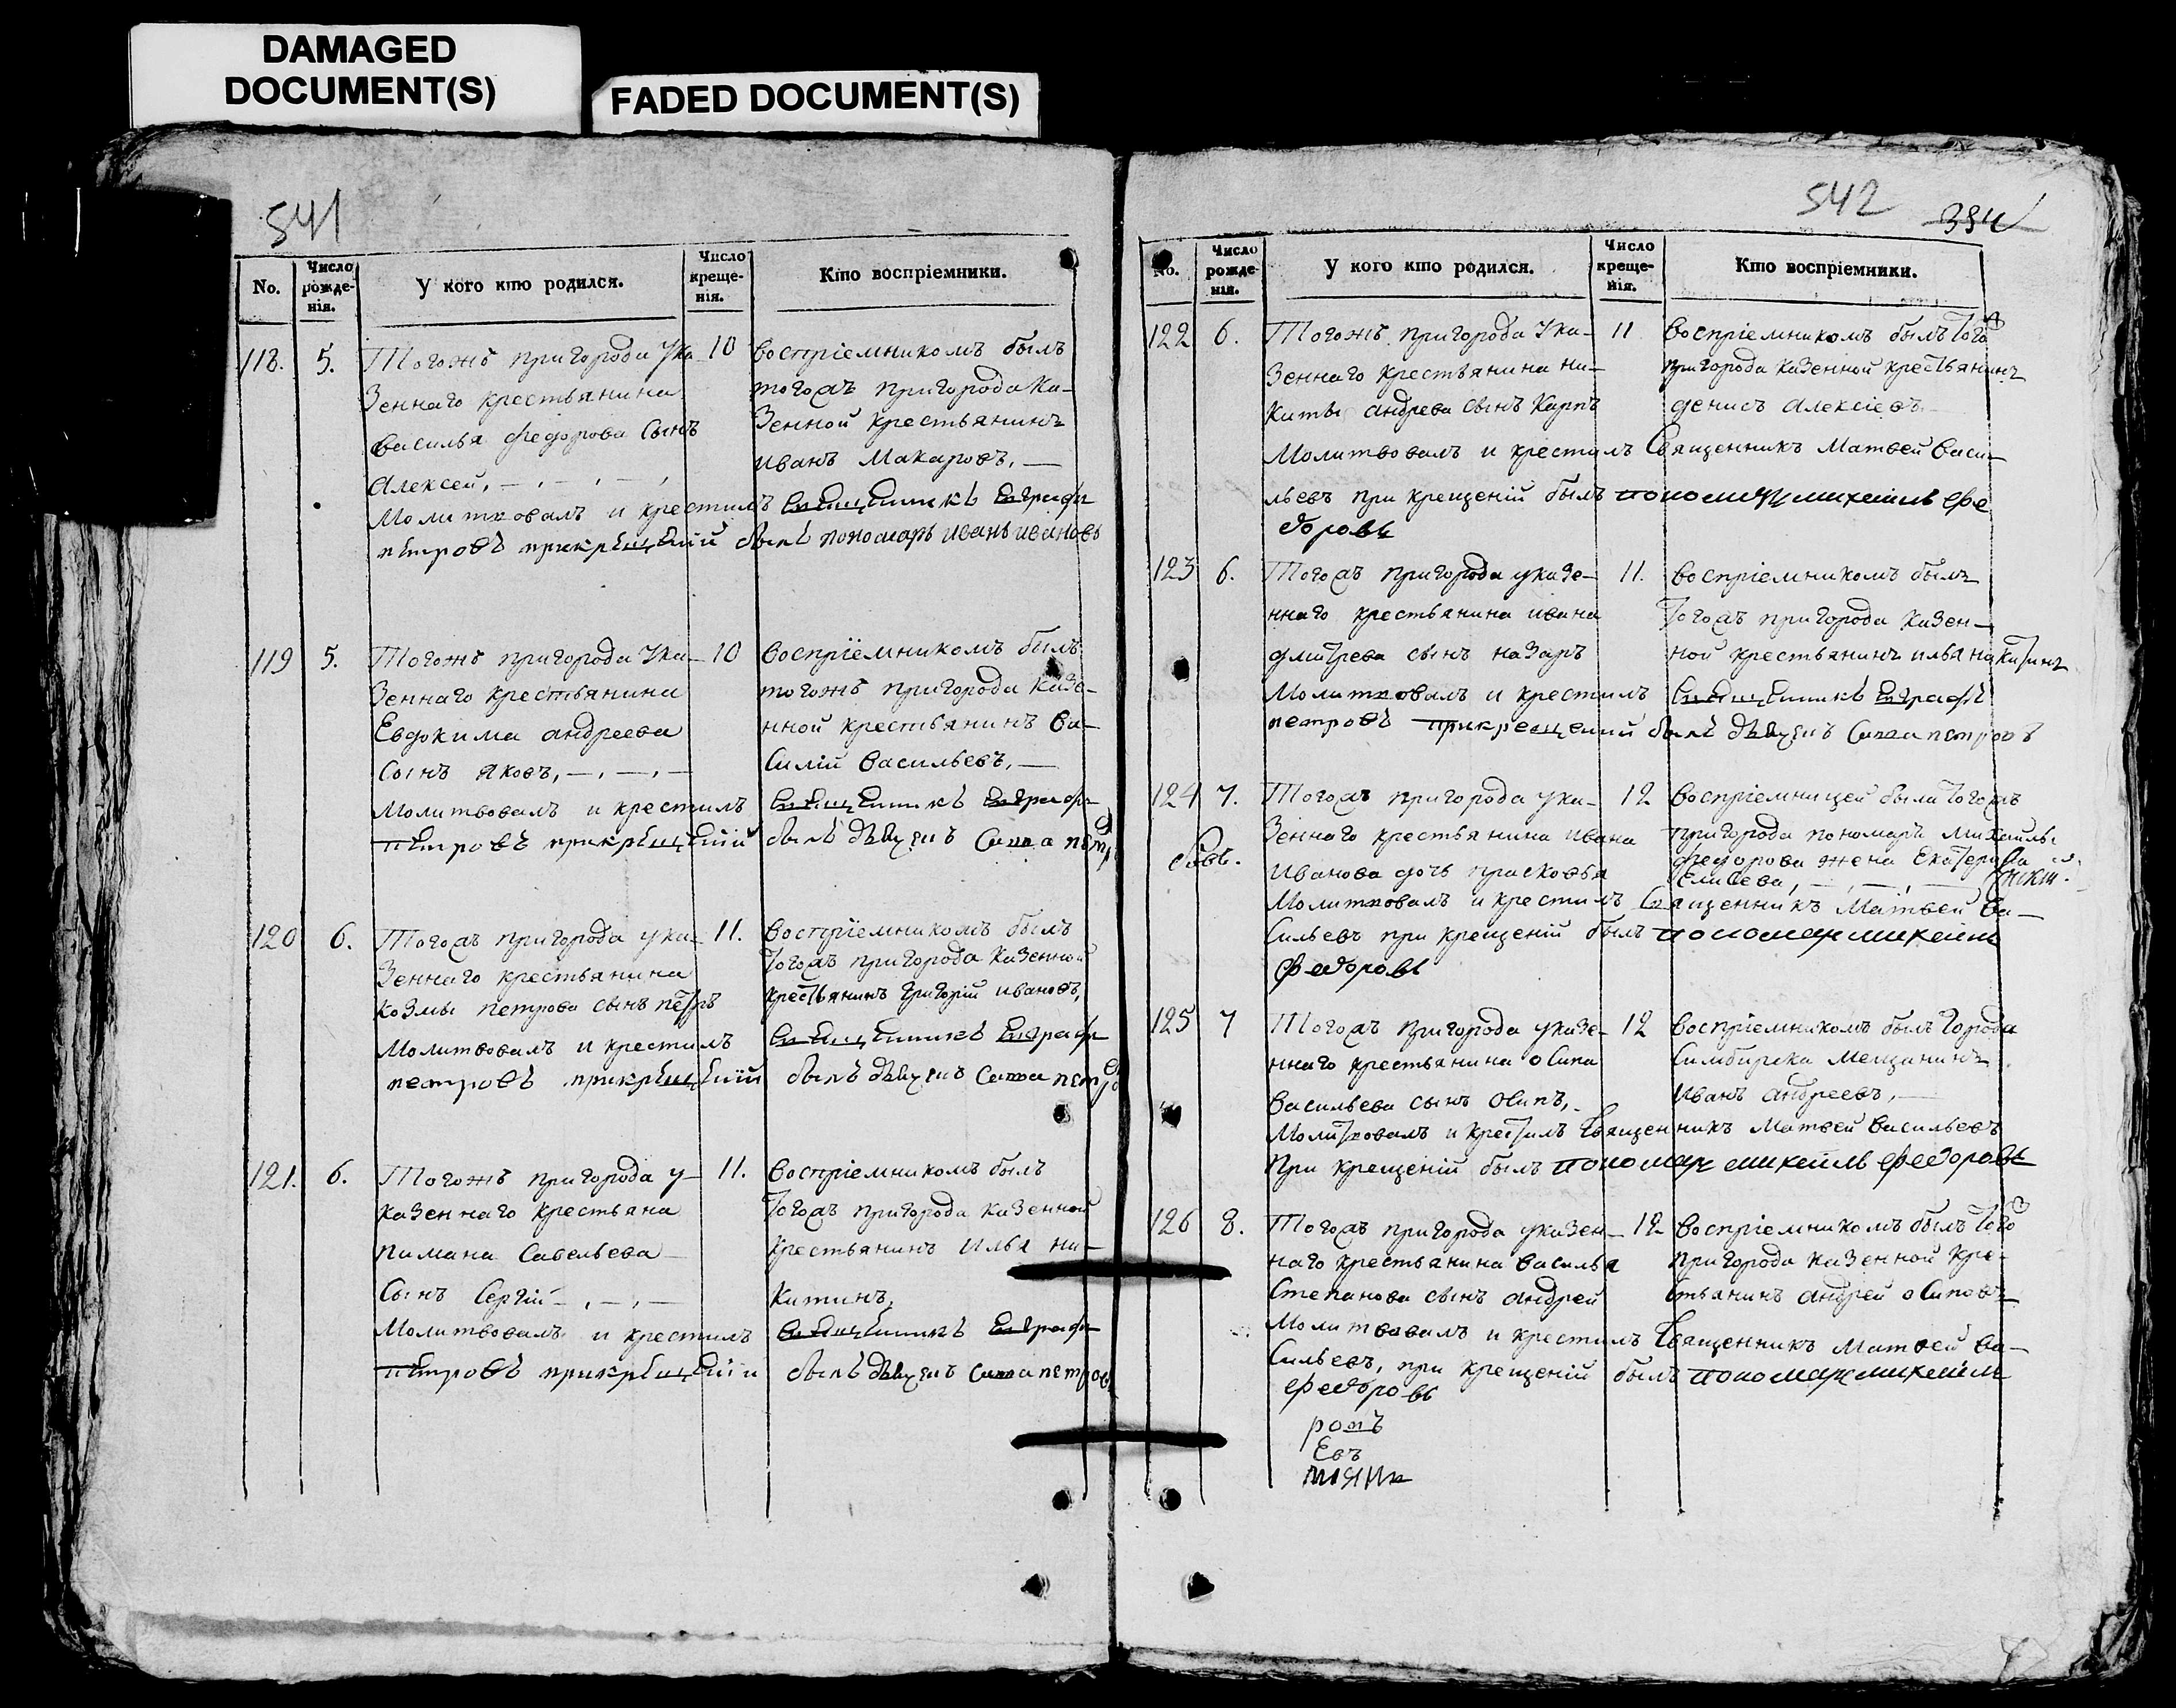 DAMAGED
DOCUMENT(S)
FADED DOCUMENT(S)
541
No.
Число рожде-нія.
У кого кто родился.
Число креще-нія.
Кто воспріемники.
118. 5. Тогожъ пригорода Ука- 10 воспріемникомъ былъ
зеннаго крестьянина тогожъ пригорода ка-
василья федорова Сынъ зенной крестьянинъ
Алексей, иванъ Макаровъ,
Молитвовалъ и крестилъ Священникъ Евграфъ
петровъ прикрещеній былъ пономарь иванъ ивановъ
119 5. Тогожъ пригорода Ука- 10 воспріемникомъ былъ
зеннаго крестьянина тогожъ пригорода казе-
Евдокима андреева нной крестьянинъ ва-
Сынъ Яковъ, силій васильевъ,
Молитвовалъ и крестилъ Священникъ Евграфъ
петровъ прикрещеній былъ
120 6. Тогожъ пригорода ука- 11. воспріемникомъ былъ
зеннаго крестьянина тогожъ пригорода казенной
козмы петрова сынъ петръ крестьянинъ григорій ивановъ,
Молитвовалъ и крестилъ Священникъ Евграфъ
петровъ прикрещеній былъ
121. 6. Тогожъ пригорода у- 11. воспріемникомъ былъ
казеннаго крестьяна тогожъ пригорода казенной
пимана Савельева крестьянинъ илья ни-
Сынъ Сергій китинъ,
Молитвовалъ и крестилъ Священникъ Евграфъ
петровъ прикрещеніи былъ
542
No.
Число рожде-нія.
У кого кто родился.
Число креще-нія.
Кто воспріемники.
122 6. Тогожъ пригорода Ука- 11 воспріемникомъ былъ того
зеннаго крестьянина ни- пригорода казенной крестьянинъ
киты андрева сынъ Карпъ денисъ алексіевъ
Молитвовалъ и крестилъ Священникъ Матвей васи-
льевъ при крещеній былъ пономарь михеилъ фе
доровъ
123 6. Тогожъ пригорода указе- 11. воспріемникомъ былъ
ннаго крестьянина ивана тогожъ пригорода казен-
дмитрева сынъ назаръ ной крестьянинъ илья никитинъ
Молитвовалъ и крестилъ Священникъ Евграфъ
петровъ прикрещеній былъ
124 7. Тогожъ пригорода ука- 12 воспріемницей была тогожъ
зеннаго крестьянина ивана пригорода пономаря михаилы
Иванова дочь прасковья федорова жена Екатерина
Молитвовалъ и крестилъ Священникъ Матвей ва-
сильевъ при крещеній былъ пономарь михеилъ
федоровъ
125 7 Тогожъ пригорода указе- 12 воспріемникомъ былъ города
ннаго крестьянина осипа Симбирска мещанинъ
васильева сынъ осипъ, иванъ андреевъ,
Молитвовалъ и крестилъ священникъ Матвей васильевъ
при крещеній былъ пономарь михеилъ федоровъ
126 8. Тогожъ пригорода указен- 12 воспріемникомъ былъ того
наго крестьянина василья пригорода казенной кре-
степанова сынъ андрей стьянинъ андрей осиповъ
Молитвовалъ и крестилъ священникъ Матвей ва-
сильевъ, при крещеній былъ пономарь михеилъ
федоровъ